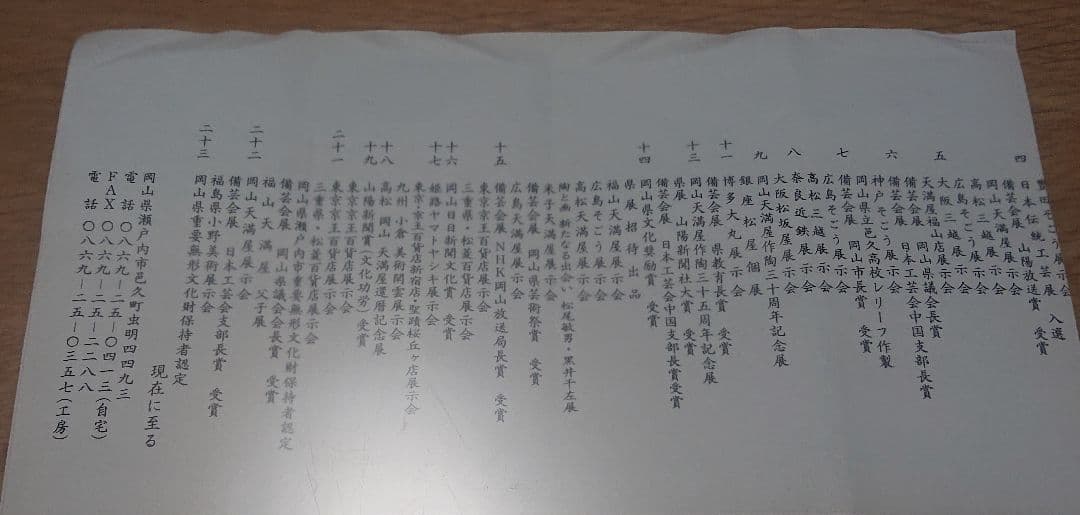 四 日本伝統工芸展 入選
備芸会展 山陽放送賞 受賞
岡山天満屋展示会
高松三越展示会
広島そごう展示会
五 大阪三越展示会
天満屋福山店展示会
備芸会展 岡山県議会長賞
備芸会展 日本工芸会中国支部長賞
六 神戸そごう展示会
岡山県立邑久高校レリーフ作製
備芸会展 岡山市長賞
七 広島そごう展示会
高松三越展示会
奈良近鉄展示会
八 大阪松坂屋展示会
岡山天満屋作陶三十周年記念展
九 銀座松屋個展
博多大丸展示会
十一 備芸会展 県教育長賞 受賞
岡山天満屋作陶三十五周年記念展
十三 県展 山陽新聞社大賞 受賞
備芸会展 日本工芸会中国支部長賞受賞
岡山県文化奨励賞 受賞
十四 県展招待出品
福山天満屋展示会
広島そごう展示会
高松天満屋展示会
陶と画・新たなる出会い 松尾敏男・黒井千左展
米子天満屋展示会
備芸会展 岡山県芸術祭賞 受賞
広島天満屋展示会
十五 備芸会展 NHK岡山放送局長賞 受賞
東京京王百貨店展示会
三重県・松菱百貨店展示会
十六 岡山日日新聞文化賞 受賞
十七 姫路ヤマトヤシキ展示会
東京・京王百貨店新宿店・聖蹟桜丘ヶ店展示会
九州 小倉 美術閑雲展示会
十八 高松 岡山 天満屋還暦記念展
十九 山陽新聞賞(文化功労)受賞
東京京王百貨店展示会
二十一 東京京王百貨店展示会
三重県・松菱百貨店展示会
岡山県瀬戸内市重要無形文化財保持者認定
備芸会展 岡山県議会会長賞 受賞
福山天満屋 父子展
二十二 岡山天満屋展示会
備芸会展 日本工芸会支部長賞 受賞
福島県小野美術展示会
二十三 岡山県重要無形文化財保持者認定
現在に至る
岡山県瀬戸内市邑久町虫明四四九三
電話 〇八六九-二五-〇四一三(自宅)
FAX 〇八六九-二五-二二八八
電話 〇八六九-二五-〇三五七(工房)